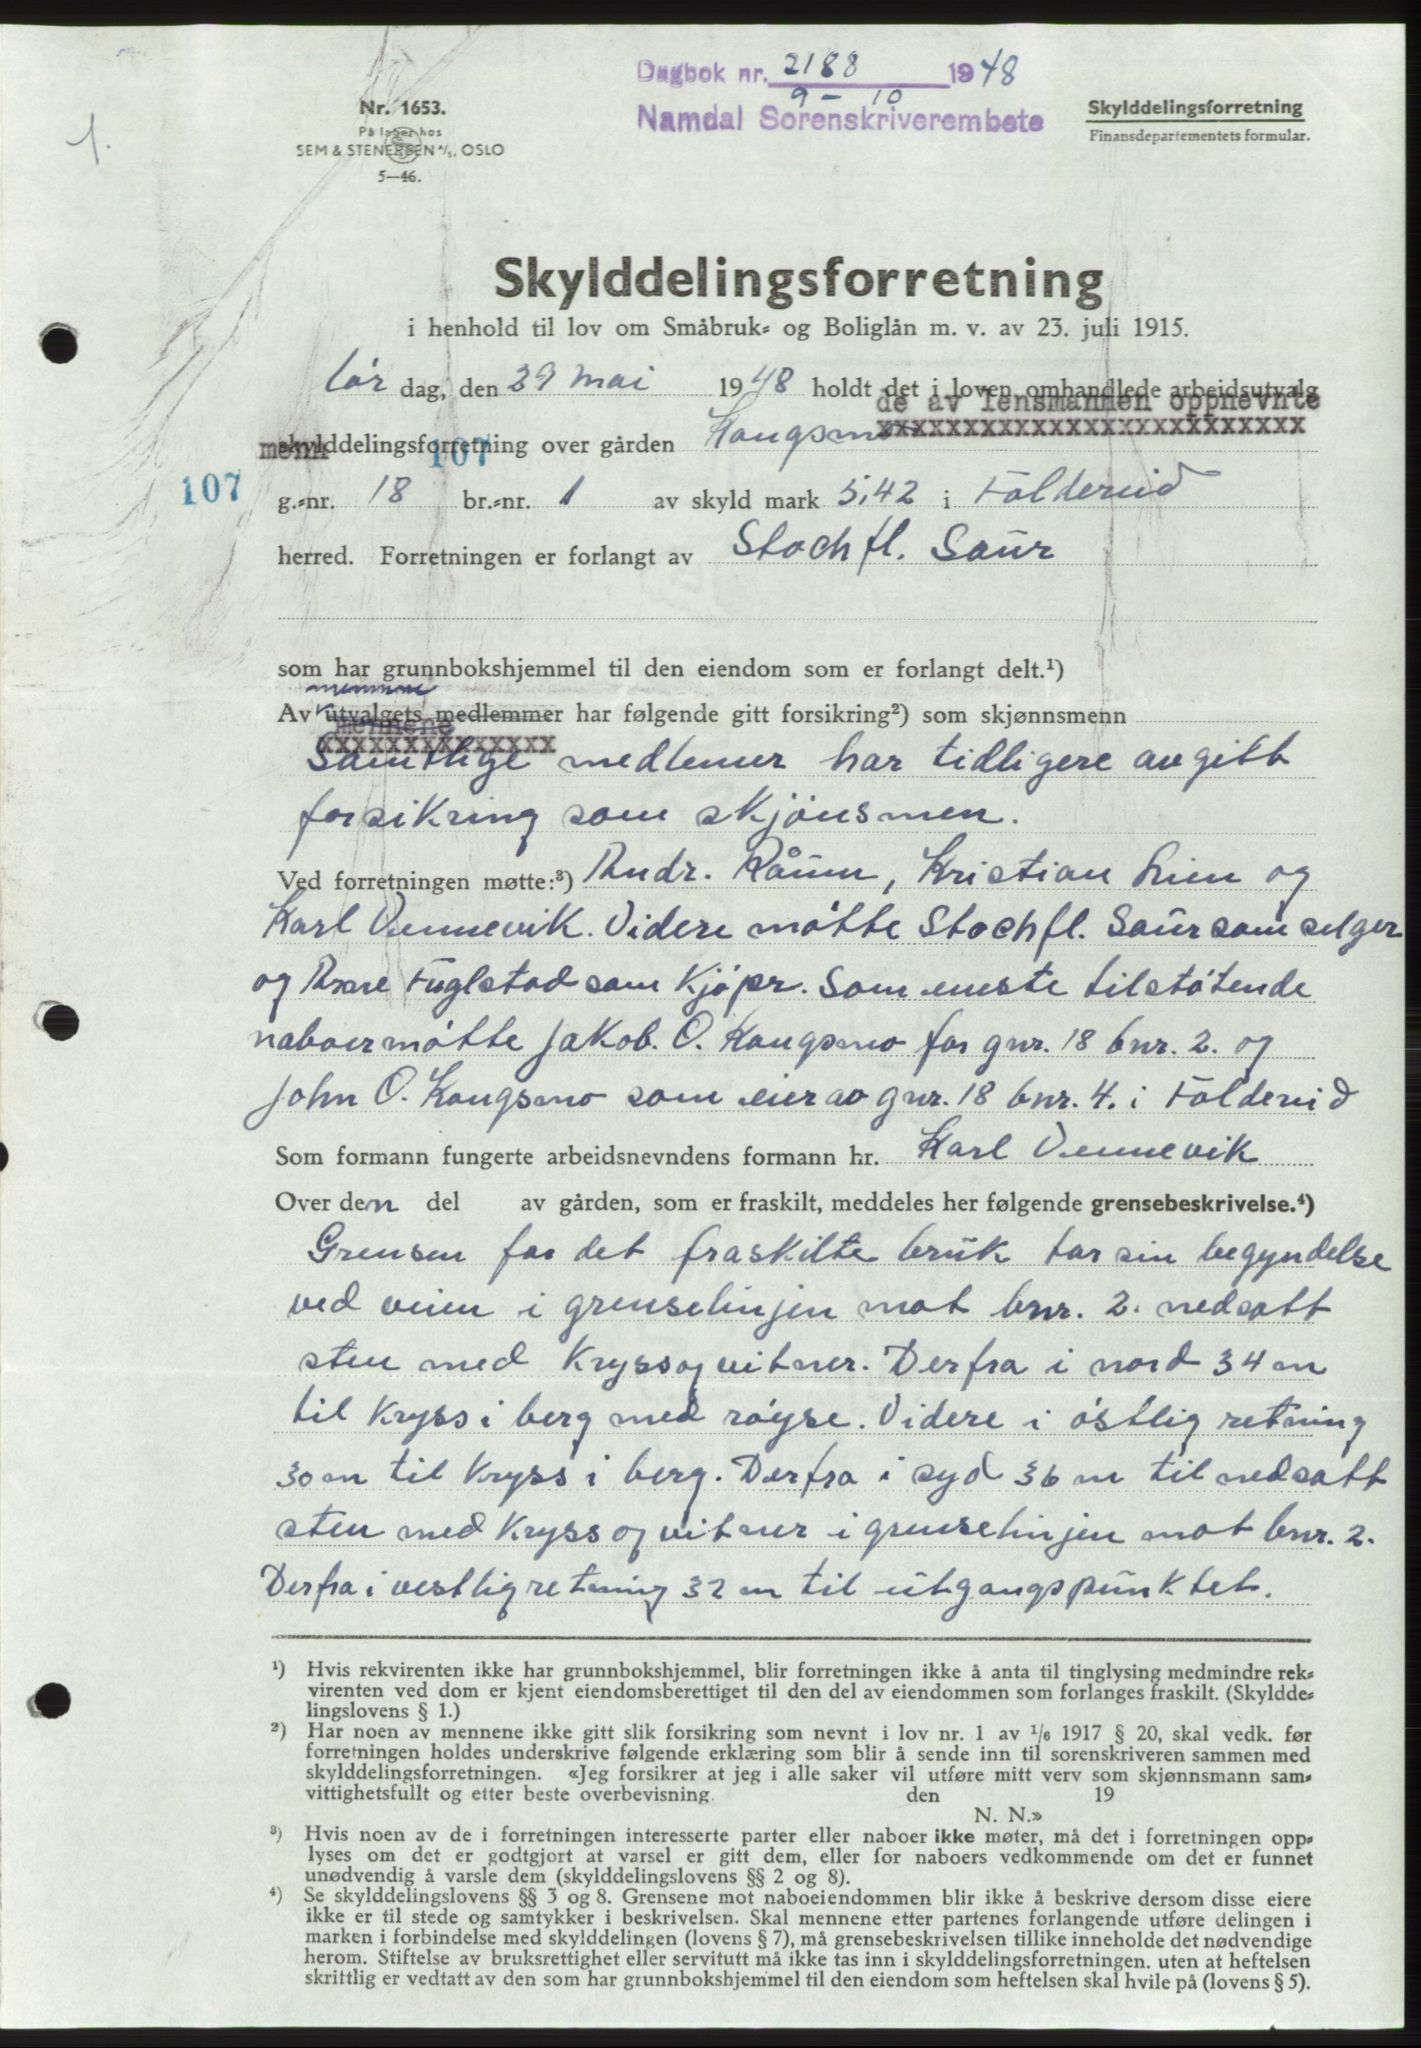 1.
Dagbok nr. 2188 1948
9 – 10
Namdal Sorenskriverembete
Nr. 1653.
På lager hos
SEM & STENERSEN A/S, OSLO
5—46.
Skylddelingsforretning
Finansdepartementets formular.
Skylddelingsforretning
i henhold til lov om Småbruk- og Boliglån m. v. av 23. juli 1915.
lør dag, den 29 mai 1948 holdt det i loven omhandlede arbeidsutvalg
de av lensmannen oppnevnte
xxxxxxxxxxxxxxxxxxxxxxxxx
menn skylddelingsforretning over gården Kongsmo
107
107
g.-nr. 18 br.-nr. 1 av skyld mark 5,42 i Foldereid
herred. Forretningen er forlangt av Stochfl. Saur
som har grunnbokshjemmel til den eiendom som er forlangt delt.¹)
mennene
Av utvalgets medlemmer har følgende gitt forsikring²) som skjønnsmenn
mennene
xxxxxxxxxxxxxx
Samtlige medlemer har tidligere avgitt
forsikring som skjønsmen.
Ved forretningen møtte:³) Andr. Råum, Kristian Lien og
Karl Vennevik. Videre møtte Stochfl. Saur som selger
og Arne Fuglstad som Kjøper. Som eneste tilstøtende
naboer møtte Jakob. O. Kongsmo for gnr. 18 bnr. 2. og
John O. Kongsmo som eier av gnr. 18 bnr. 4. i Foldereid
Som formann fungerte arbeidsnevndens formann hr. Karl Vennevik
Over den del av gården, som er fraskilt, meddeles her følgende grensebeskrivelse.⁴)
Grensen for det fraskilte bruk tar sin begyndelse
ved veien i grenselinjen mot bnr. 2. nedsatt
sten med Kryss og vitner. Derfra i nord 34 m
til Kryss i berg med røyse. Videre i østlig retning
30 m til Kryss i berg. Derfra i syd 36 m til nedsatt
sten med Kryss og vitner i grenselinjen mot bnr. 2.
Derfra i vestlig retning 32 m til utgangspunktet.
¹) Hvis rekvirenten ikke har grunnbokshjemmel, blir forretningen ikke å anta til tinglysing medmindre rek-
virenten ved dom er kjent eiendomsberettiget til den del av eiendommen som forlanges fraskilt. (Skyldde-
lingslovens § 1.)
²) Har noen av mennene ikke gitt slik forsikring som nevnt i lov nr. 1 av ¹/₆ 1917 § 20, skal vedk. før
forretningen holdes underskrive følgende erklæring som blir å sende inn til sorenskriveren sammen med
skylddelingsforretningen. «Jeg forsikrer at jeg i alle saker vil utføre mitt verv som skjønnsmann sam-
vittighetsfullt og etter beste overbevisning. den 19
N. N.»
³) Hvis noen av de i forretningen interesserte parter eller naboer ikke møter, må det i forretningen opp-
lyses om det er godtgjort at varsel er gitt dem, eller for naboers vedkommende om det er funnet
unødvendig å varsle dem (skylddelingslovens §§ 2 og 8).
⁴) Se skylddelingslovens §§ 3 og 8. Grensene mot naboeiendommen blir ikke å beskrive dersom disse eiere
ikke er til stede og samtykker i beskrivelsen. Skal mennene etter partenes forlangende utføre delingen i
marken i forbindelse med skylddelingen (lovens § 7), må grensebeskrivelsen tillike inneholde det nødvendige
herom. Stiftelse av bruksrettighet eller servitutt må ikke tas inn i skylddelingsforretningen. uten at heftelsen
skrittlig er vedtatt av den som har grunnbokshjemmel til den eiendom som heftelsen skal hvile på (lovens § 5).